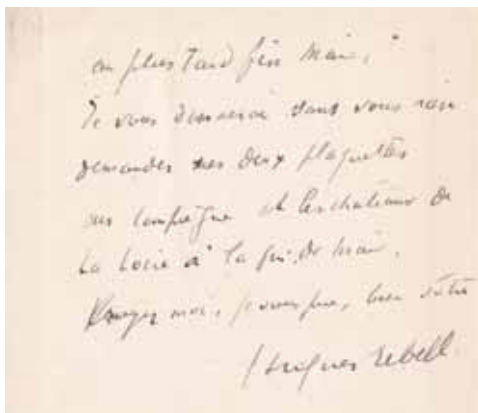 au plus tard fin Mai,
Je vous donnerai sans vous rien
demander mes deux plaquettes
sur Compiègne et les chateaux de
La Loire à la fin de Mai.
Croyez moi, je vous prie, bien vôtre
Hugues Rebell